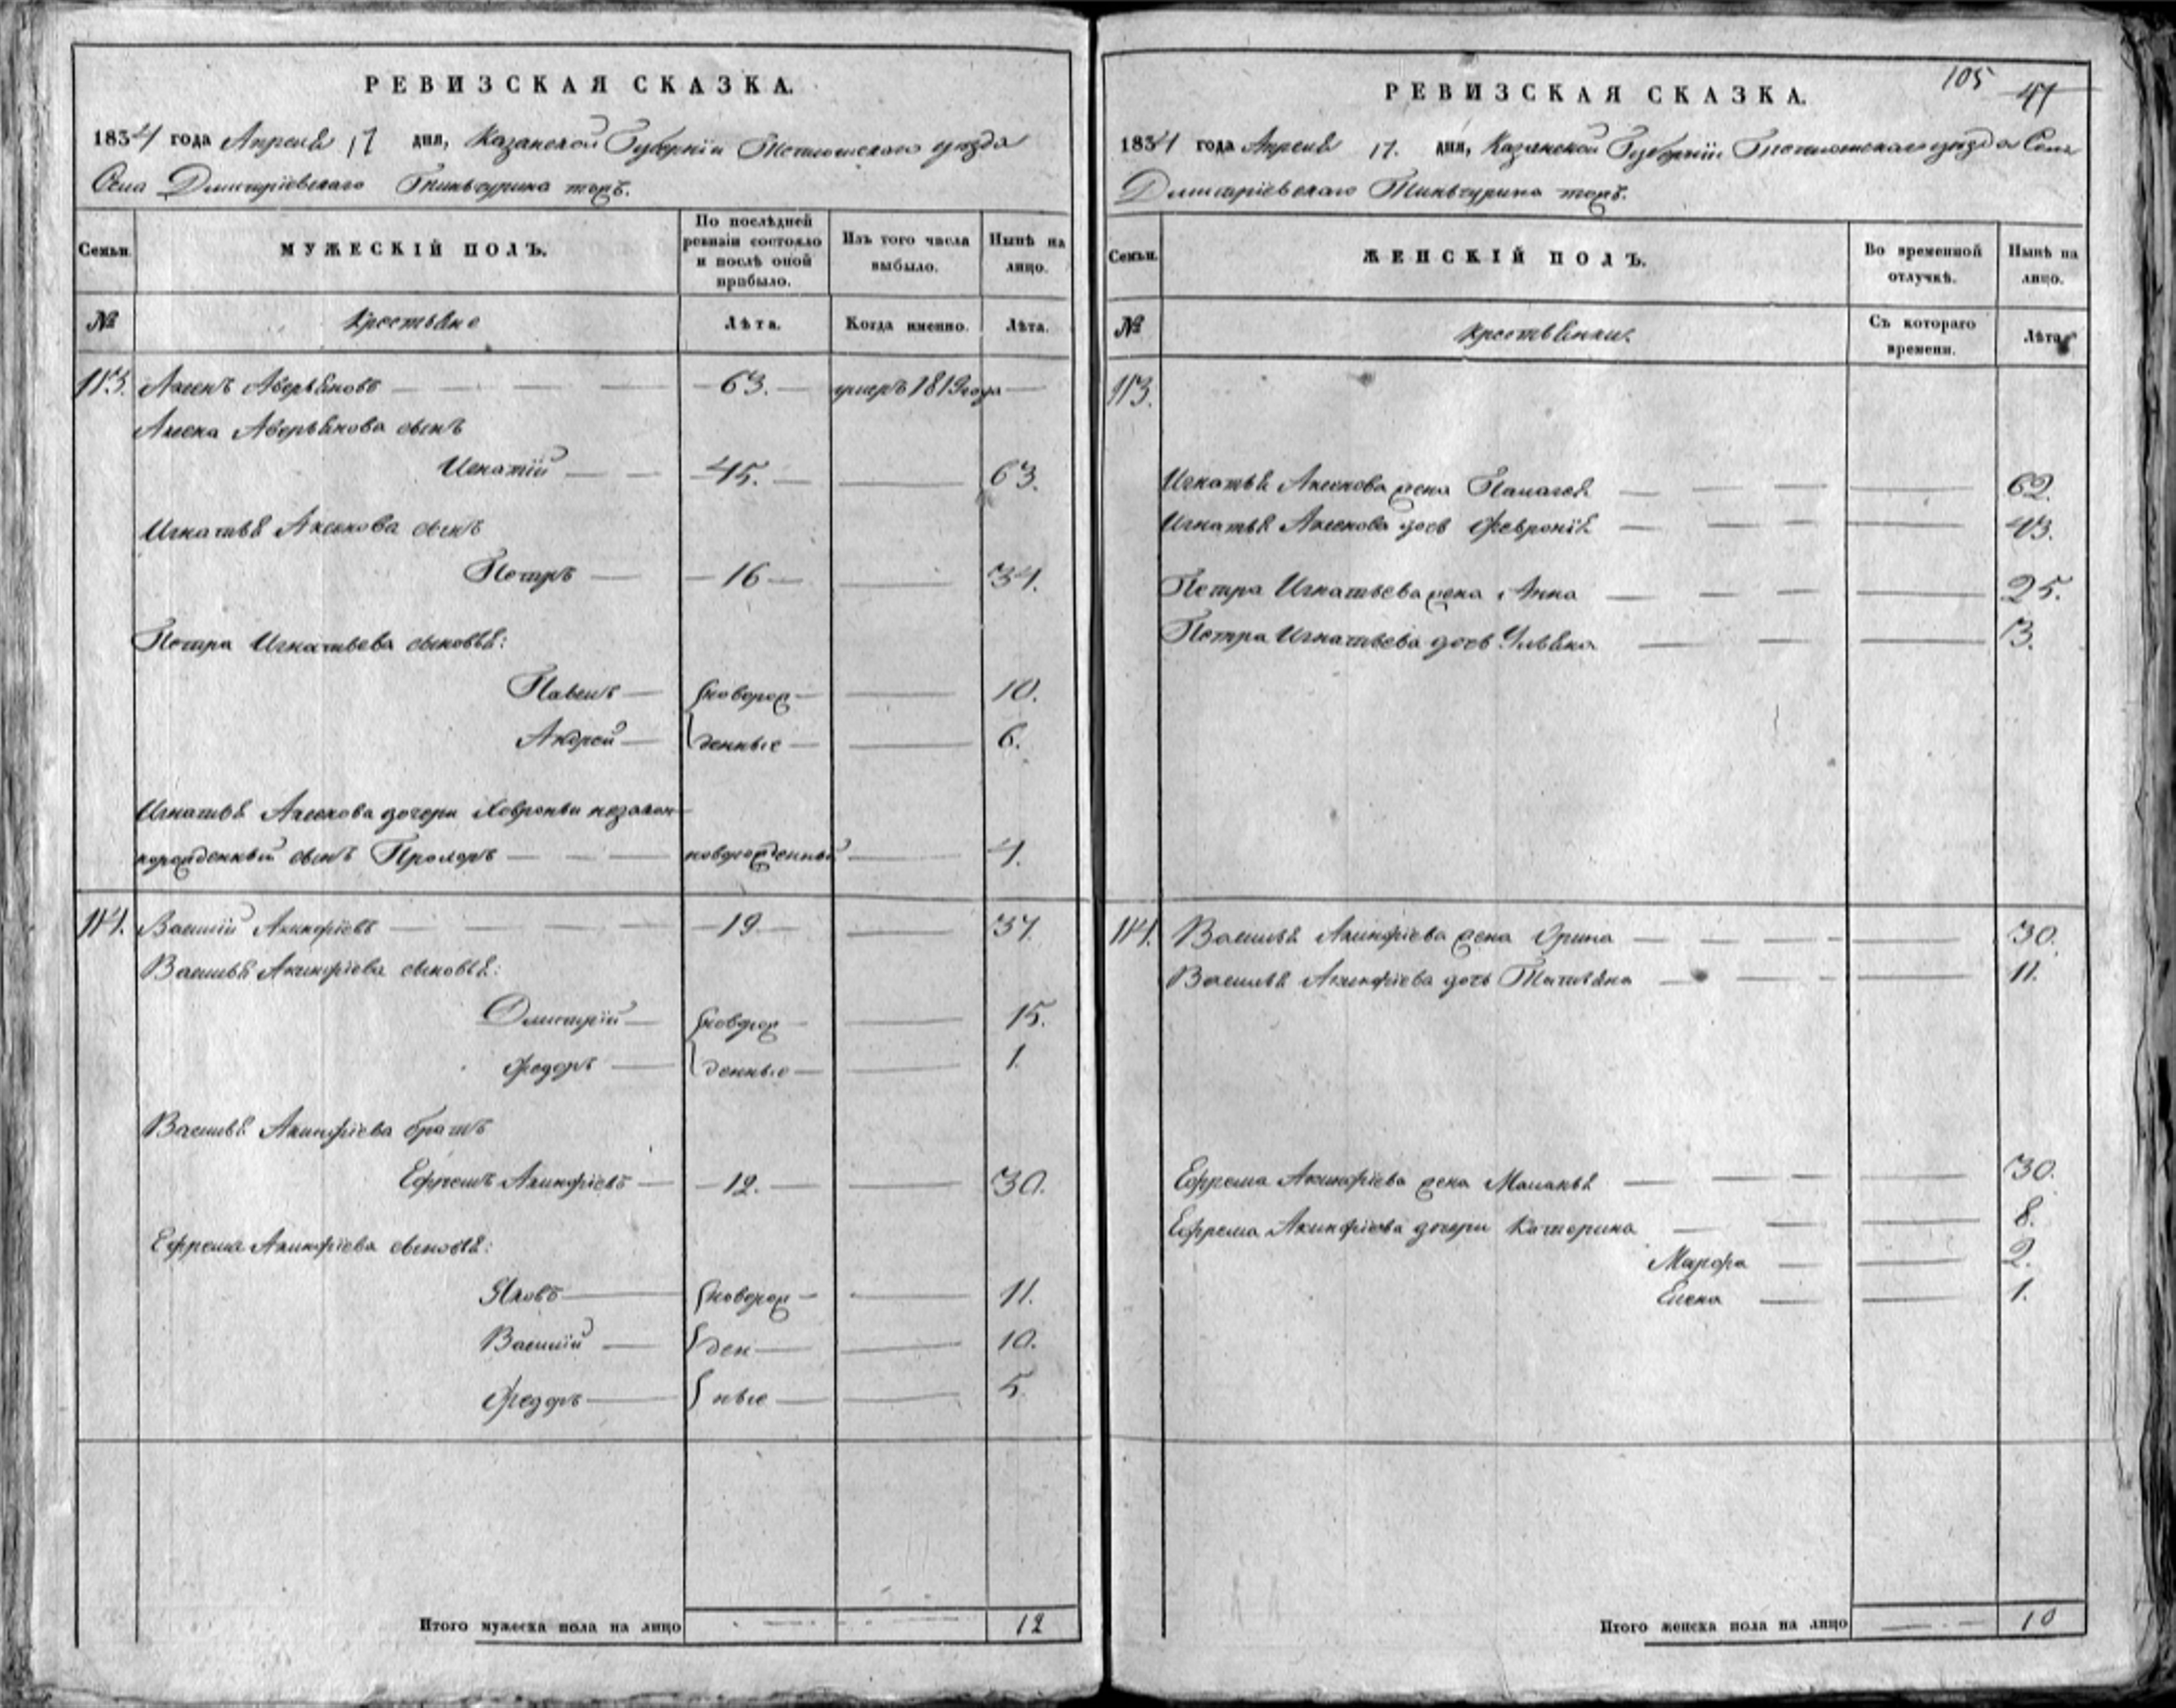 РЕВИЗСКАЯ СКАЗКА.
1834 года Апреля 17 дня, Казанской Губернiи Тетюшского уезда
Села Дмитрiевскаго Тиньчурина тожъ.
Семьи. МУЖЕСКIЙ ПОЛЪ. По послѣдней ревизiи состояло и послѣ оной прибыло. Изъ того числа выбыло. Нынѣ на лицо.
№ Крестьяне Лѣта. Когда именно. Лѣта.
113. Аксенъ Аверьяновъ 63. умеръ 1819 года
Аксена Аверьянова сынъ
Игнатiй 45. 63.
Игнатья Аксенова сынъ
Петръ 16 34.
Петра Игнатьева сыновья:
Павелъ новорож 10.
Андрей денные 6.
Игнатья Аксенова дочери Хавроньи незакон
норожденный сынъ Прохоръ новорожденный 4.
114. Василiй Акинфiевъ 19 37.
Василья Акинфiева сыновья:
Дмитрiй новорож 15.
Федоръ денные 1.
Василья Акинфiева братъ
Ефремъ Акинфiевъ 12. 30.
Ефрема Акинфiева сыновья:
Яковъ новорож 11.
Василiй ден 10.
Федоръ ные 5.
Итого мужеска пола на лицо 12
105 47
РЕВИЗСКАЯ СКАЗКА.
1834 года Апреля 17. дня, Казанской Губернiи Тетюшского уезда Села
Дмитрiевскаго Тиньчурина тожъ.
Семьи. ЖЕНСКIЙ ПОЛЪ. Во временной отлучкѣ. Нынѣ на лицо.
№ Крестьянки. Съ котораго времени. Лѣта.
113.
Игнатья Аксенова жена Палагея 62.
Игнатья Аксенова дочь Февронiя 43.
Петра Игнатьева жена Анна 25.
Петра Игнатьева дочь Ульяна 3.
114. Василья Акинфiева жена Орина 30.
Василья Акинфiева дочь Татьяна 11.
Ефрема Акинфiева жена Маланья 30.
Ефрема Акинфiева дочери Катерина 8.
Марфа 2.
Елена 1.
Итого женска пола на лицо 10